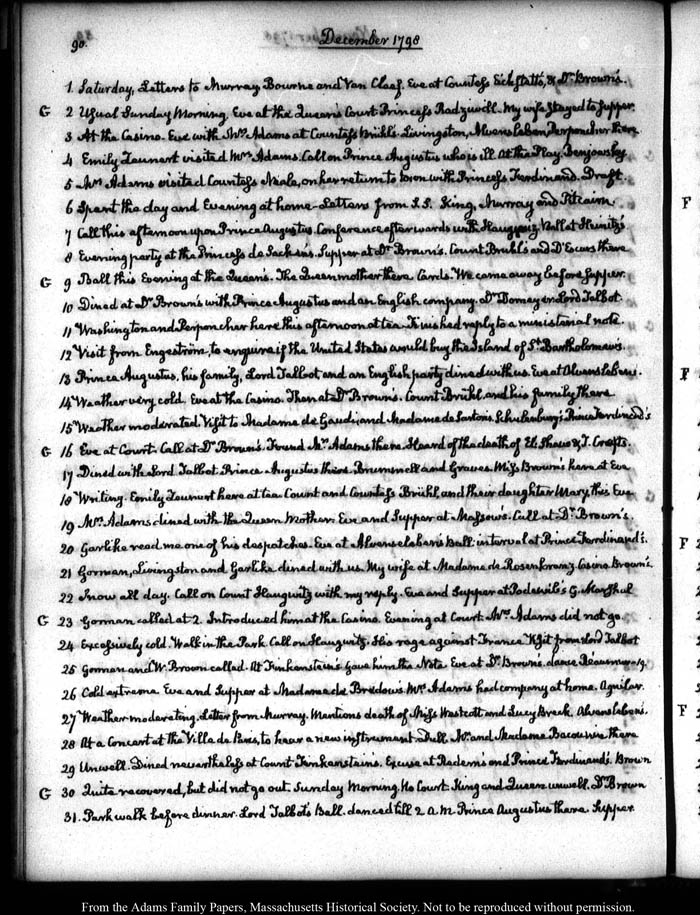 90.
December 1798
1. Saturday, Letters to Murray Bourne and Van Cleef. Eve at Countess Eickstatt's, & Dr. Brown's.
G 2 Usual Sunday Morning. Eve at the Queen's Court Princess Radziwill. My wife stayed to supper.
3 At the Casino. Eve with Mrs. Adams at Countess Brühl's Livingston, Alvensleben, Perponcher there.
4 Emily Tounert visited Mrs. Adams. Call on Prince Augustus who is ill. At the Play. Benjowsky
5 Mrs. Adams visited Countess Neale, on her return to town with Princess Ferdinand. Draft.
6 Spent the day and Evening at home. Letters from King, Murray and Pitcairn
7 Call this afternoon upon Prince Augustus. Conference afterwards with Haugwitz. Ball at
8 Evening party at the Princess de Sacken's. Supper at Dr. Brown's. Count Bruhl's and there
G 9 Ball this Evening at the Queen's. The Queen mother there. Cards. We came away before supper.
10 Dined at Dr. Brown's with Prince Augustus and an English company. Lord Talbot.
11 Washington and Perponcher here this afternoon at tea. Finished reply to a ministerial note.
12 Visit from Engeström, to enquire if the United States would buy the Island of St. Bartholomew's.
13 Prince Augustus, his family, Lord Talbot and an English party dined with us. Eve at Alvenslebens.
14 Weather very cold. Eve at the Casino. Then at Dr. Brown's. Count Brühl, and his family there
15 Weather moderated. Visit to Madame de Gaudi, and Madame de Schulenburg's Prince Ferdinand's
G 16 Eve at Court. Call at Dr. Brown's. Found Mrs. Adams there. Heard of the death of El: Shaw & J. Crafts.
17 Dined with Lord Talbot. Prince Augustus there. Brummell and Graves. Miss Brown's here at Eve
18 Writing. Emily here at tea. Count and Countess Brühl, and their daughter Mary, this Eve
19 Mrs. Adams dined with the Queen Mother. Eve and Supper at Massow's. Call at Dr. Brown's.
20 Garlike read me one of his despatches. Eve at Alvensleben's Ball: interval at Prince Ferdinand's.
21 Gorman, Livingston and Garlike dined with us. My wife at Madame de Rosenkranz. Casino. Brown's.
22 Snow all day. Call on Count Haugwitz with my reply. Eve and Supper at Podewils's G. Marshal
G 23 Gorman called at 2. Introduced him at the Casino. Evening at Court. Mrs. Adams did not go.
24 Excessively cold. Walk in the Park. Call on Haugwitz. His rage against France. Visit from Lord Talbot
25 Gorman and W. Brown called. At Finkenstein's. Gave him the Note. Eve at Dr. Brown's. dance Réaumur 19.
26 Cold extreme. Eve and Supper at Madame de Bredow's. Mrs. Adams had company at home. Aguilar.
27 Weather moderating. Letter from Murray. Mentions death of Miss Westcott and Lucy Breck. Alvenslebens.
28 At a Concert at the Ville de Paris, to hear a new instrument. Dull. Mr. and Madame there
29 Unwell. Dined nevertheless at Count Finkenstein's. Excuse at Redern's and Prince Ferdinand's. Brown
G 30 Quite recovered, but did not go out. Sunday Morning. No Court. King and Queen unwell. Dr. Brown
31. Park walk before dinner. Lord Talbot's Ball. danced till 2 a.m. Prince Augustus there. Supper.
F
F
F 2
F
From the Adams Family Papers, Massachusetts Historical Society. Not to be reproduced without permission.